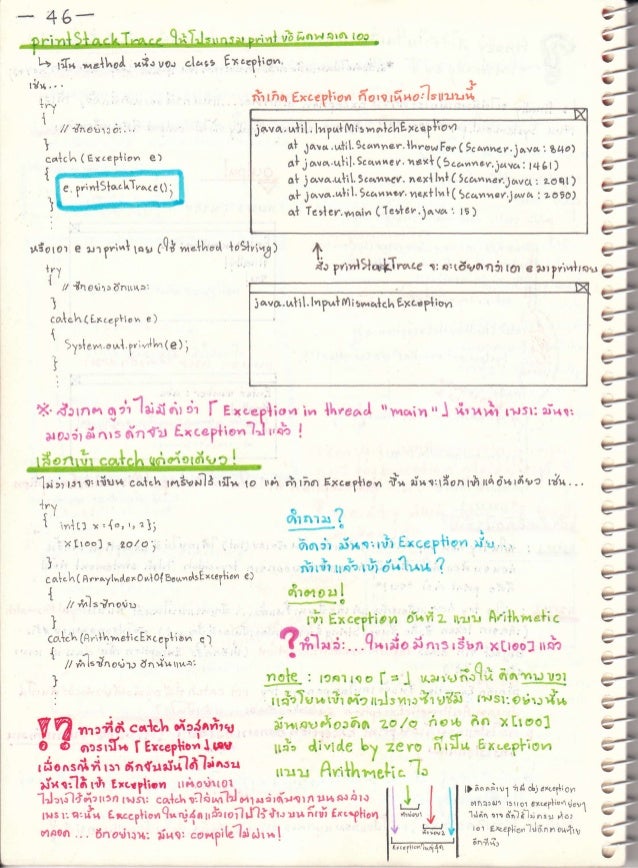 — 46 —
printStackTrace ให้โปรแกรมprintข้อผิดพลาดเอง
↳ เป็น method หนึ่งของ class Exception.
เช่น...
try
{
// ซักอย่างอ่ะ...
}
catch (Exception e)
{
e.printStackTrace();
}
ถ้าเกิด Exception ก็อาจเห็นอะไรแบบนี้
java.util.InputMismatchException
at java.util.Scanner.throwFor(Scanner.java:840)
at java.util.Scanner.next(Scanner.java:1461)
at java.util.Scanner.nextInt(Scanner.java:2091)
at java.util.Scanner.nextInt(Scanner.java:2050)
at Tester.main(Tester.java:15)
หรือเอา e มาprintเลย (ใช้ method toString)
try
{
// ซักอย่างอีกแหละ
}
catch(Exception e)
{
System.out.println(e);
}
สั่ง printStackTrace จะละเอียดกว่าเอา e มาprintเลย
java.util.InputMismatchException
※. สังเกตดูว่า ไม่มีคำว่า 「Exception in thread "main"」 นำหน้า เพราะมันจะ
มองว่ามีการดักจับ Exceptionไปแล้ว !
เลือกเข้า catch แค่ตัวเดียว!
ไม่ว่าเราจะเขียน catch เตรียมไว้ เป็น 10 แต่ ถ้าเกิด Exception ขึ้น มันจะเลือกเข้าแค่อันเดียว เช่น...
try
{
int[] x={0,1,2};
x[100] = 20/0;
}
catch(ArrayIndexOutOfBoundsException e)
{
// ทำไรซักอย่าง
}
catch(ArithmeticException e)
{
// ทำไรซักอย่าง อีกนั่นแหละ
}
คำถาม?
คิดว่า มันจะเข้า Exception มั้ย
ถ้าเข้าแล้วเข้าอันไหน ?
คำตอบ!
เข้า Exception อันที่ 2 แบบ Arithmetic
? ทำไมอ่ะ...ในเมื่อ มีการเรียก x[100] แล้ว
note : เวลาเจอ 「=」 หมายถึงให้ คิดทางขวา
แล้วโยนเข้าตัวแปรทางซ้ายใช่มั้ย เพราะอย่างนั้น
มันเลยต้องคิด 20/0 ก่อน คิด x[100]
แล้ว divide by zero ก็เป็น Exception
แบบ Arithmetic ไง
!? ทางที่ดี catch ตัวสุดท้าย
ควรเป็น 「Exception」เลย
เผื่อกรณีที่เรา ดักจับมันได้ไม่ครบ
มันจะได้เข้า Exception แต่อย่าเอา
ไปวางไว้ตัวแรก เพราะ catch จะไล่เข้าไปตามลำดับจากบนลงล่าง
เพราะฉะนั้น Exceptionใหญ่สุดแล้วเอาไปไว้ข้างบนก็เข้า Exception
ตลอด ... อีกอย่างนะ มันจะ compileไม่ผ่าน!
Exceptionใหญ่สุด